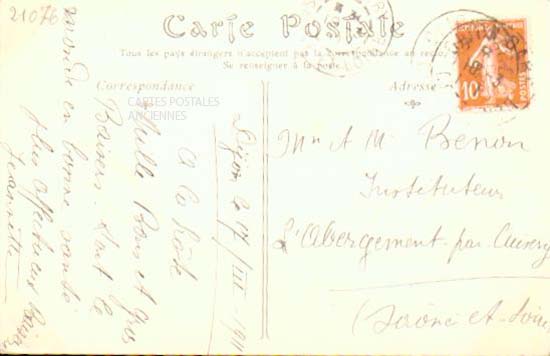 21076
Carte Postale
Tous les pays étrangers n'acceptent pas la correspondance au recto.
Se renseigner à la poste.
Correspondance
Adresse
CARTES POSTALES
ANCIENNES
10
Dijon le 17/III-1911
à la hâte
Mille Bons et Gros
Baisers. Tout le
monde en bonne santé
plus affectueux baisers
Jeannette
Mr A M. Benon
Instituteur
L'Abergement par Cuisery
(Saône et-Loire